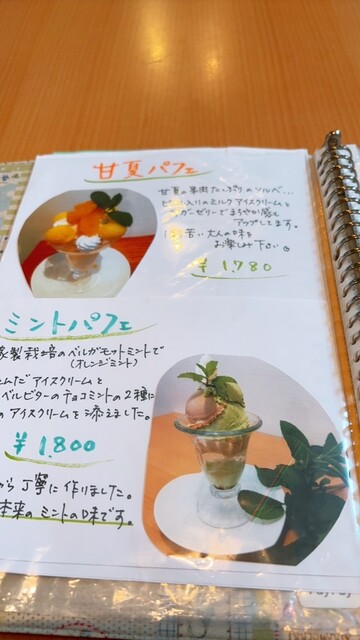 甘夏パフェ
甘夏の果肉たっぷりのソルベ…
入りのミルクアイスクリームと
ガーゼリーでまろやか感も
アップしてます。
苦い大人の味を
お楽しみ下さい。
￥1,780
ミントパフェ
家製栽培のベルガモットミントで
(オレンジミント)
んだアイスクリームと
ベルビターのチョコミントの2種に
のアイスクリームを添えました。
￥1,800
から丁寧に作りました。
本来のミントの味です。